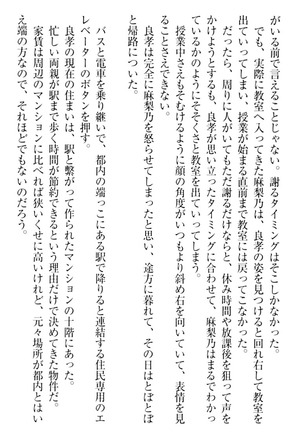 がいる前で言えることじゃない。謝るタイミングはそこしかなかった。
でも、実際に教室へ入ってきた麻梨乃は、良孝の姿を見つけると回れ右して教室を
出ていってしまい、授業が始まる直前まで教室には戻ってこなかった。
だったら、周りに人がいてもただ謝るだけならと、休み時間や放課後を狙って声を
かけようとするも、良孝が思い立ったタイミングに合わせて、麻梨乃はまるでわかっ
ているかのようにそそくさと教室を出ていってしまう。
授業中さえもそむけるように顔の角度がいつもより斜め右を向いていて、表情を見
ることさえできない。
良孝は完全に麻梨乃を怒らせてしまったと思い、途方に暮れて、その日はとぼとぼ
と帰路についた。
バスと電車を乗り継いで、都内の端っこにある駅で降りると連結する住民専用のエ
レベーターのボタンを押す。
良孝の現在の住まいは、駅と繋がって作られたマンションの十階にあった。
忙しい両親が駅まで歩く時間が節約できるという理由だけで決めてきた物件だ。
家賃は周辺のマンションに比べれば狭いくせに高いけれど、元々場所が都内とはい
え端の方なので、それほどでもないのだろう。